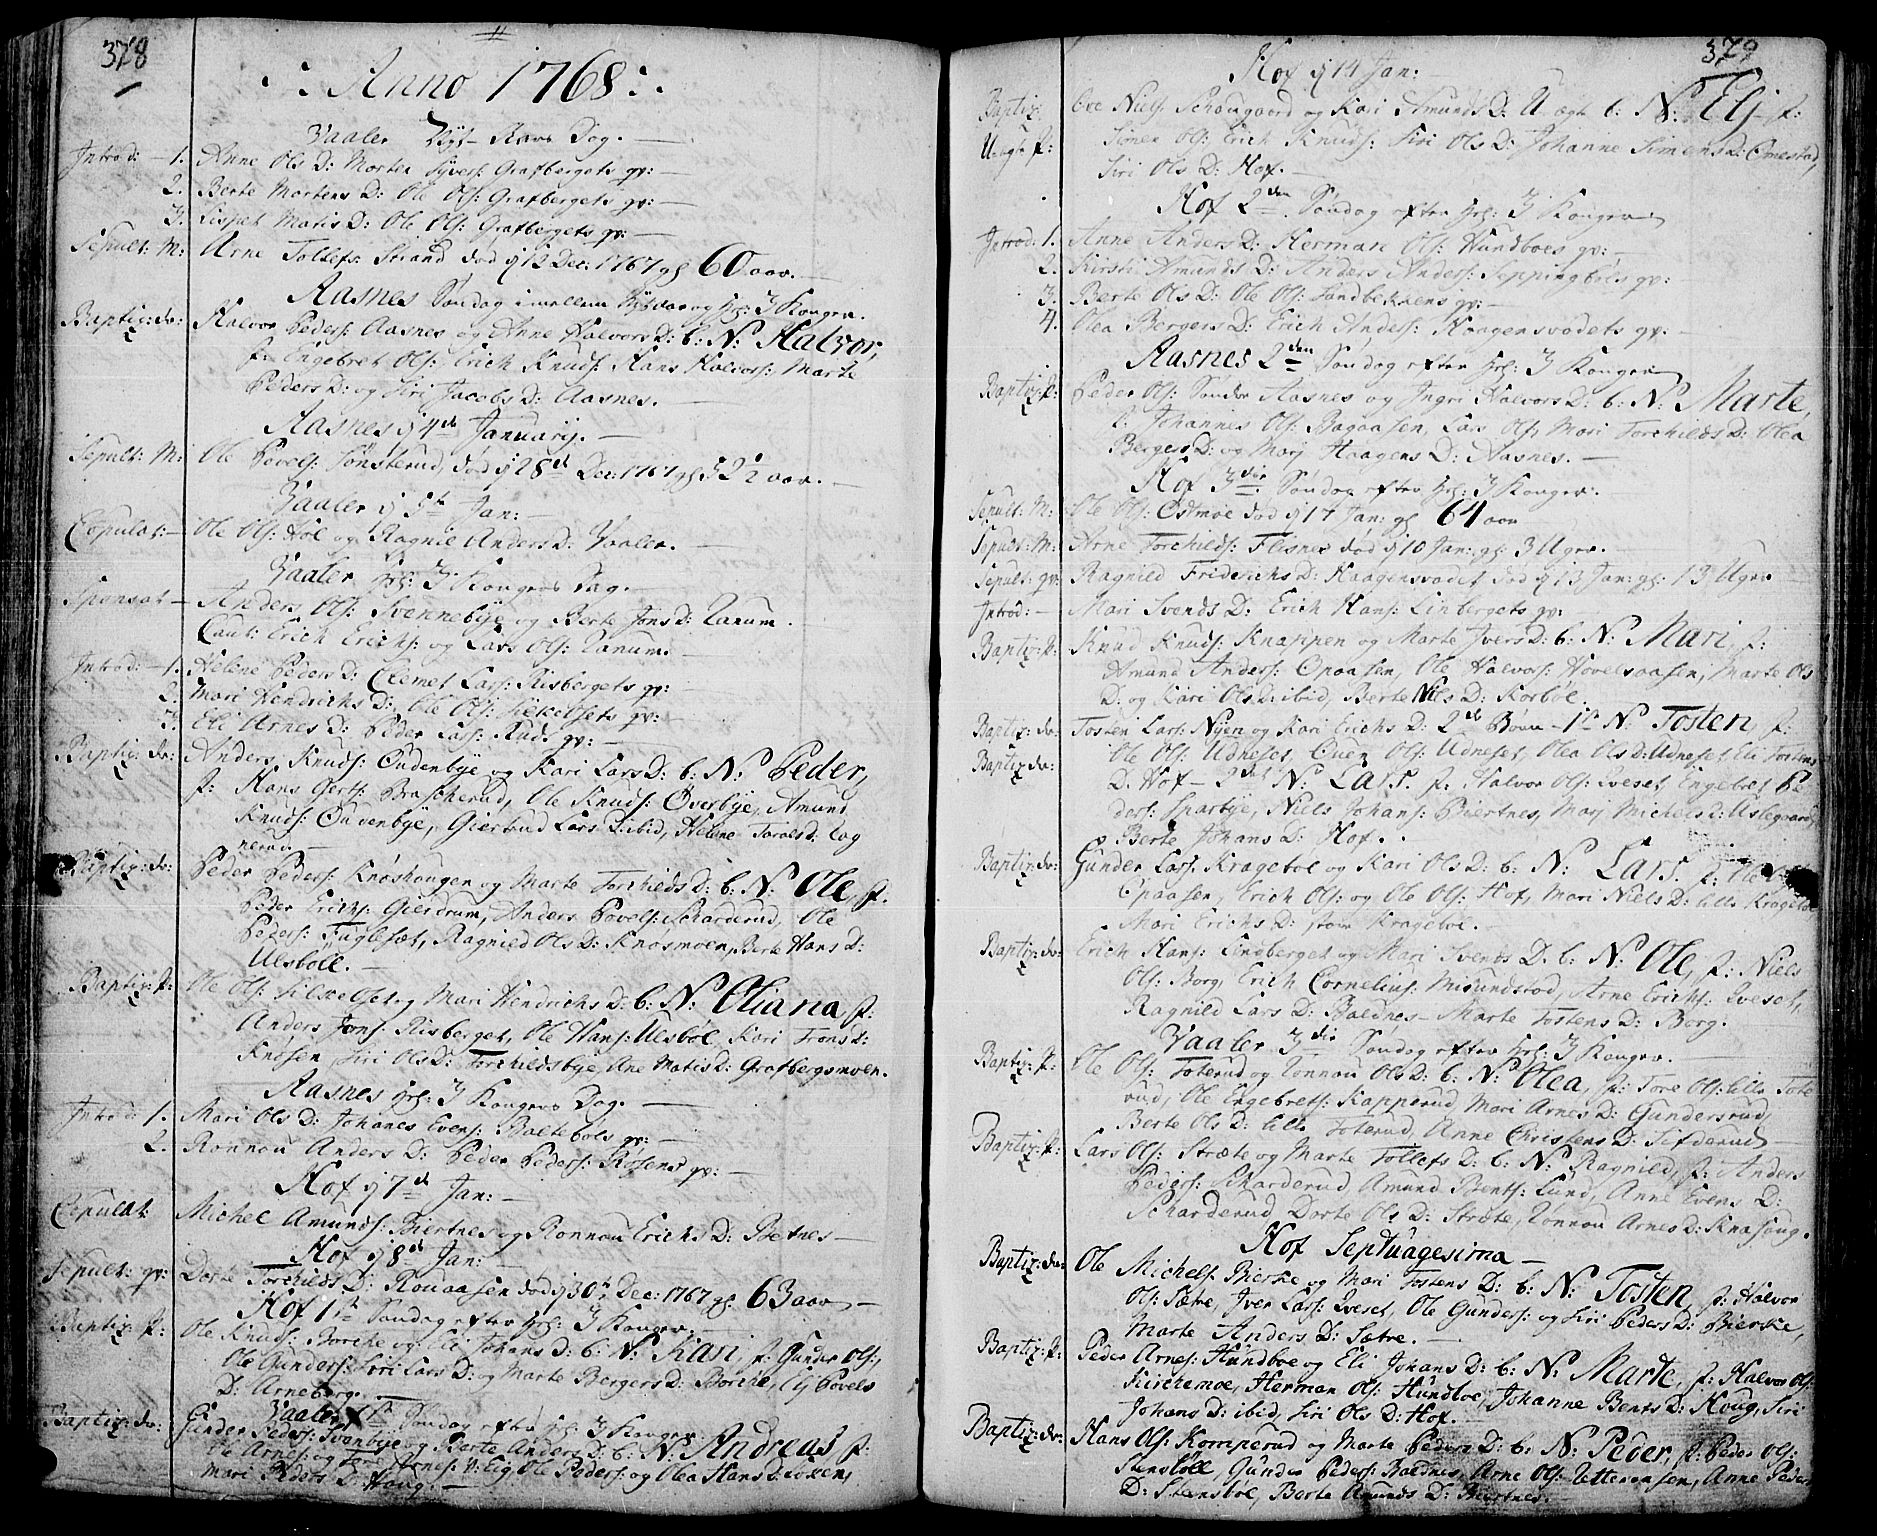 378
Anno 1768
Vaaler Nyt-Aars Dag.
Introd: 1. Anne Ols D: Morten Syvers: Grafbergets qv:
2. Berte Mortens D: Ole Ols: Grafbergets qv:
3. Lispet Matis D: Ole Ols: Grafbergets qv:
Sepult: M: Arne Tollefs: Strand død d 12 Dec: 1767 gl 60 aar.
Aasnes Søndag imellem Nytaar og hel: 3 Konger.
Baptiz: dr: Halvor Peders: Aasnes og Anne Halvors D: b: N: Halvor,
f: Engebret Ols: Erich Knuds: Hans Halvors: Marte
Peders D: og Siri Jacobs D: Aasnes.
Aasnes d 4de Januarij.
Sepult: M: Ole Povels: Sønsterud, død d 28de Dec: 1767 gl 32½ aar.
Vaaler d 5te Jan:
Copulat: Ole Ols: Hol og Ragnil Anders D: Vaaler.
Vaaler hel: 3 Kongers Dag.
Sponsat Anders Ols: Svennebye og Berte Jøns D: Ranum.
Caut: Erich Erichs: og Lars Ols: Ranum.
Introd: 1. Helene Peders D: Clemet Lars: Risbergets qv:
2. Mari Hendrichs D: Ole Ols: Silkeosets qv:
3. Eli Arnes D: Peder Lars: Ruds qv:
Baptiz: dr: Anders Knuds: Oudenbye og Kari Lars D: b: N: Peder,
f: Hans Gerts: Brascherud, Ole Knuds: Overbye, Amund
Knuds: Oudenbye, Giertrud Lars D: ibid, Helene Torals D: Løg
nerud
Baptiz: dr: Peder Peders: Knøshougen og Marte Torchilds D: b: N: Ole, f.
Peder Erichs: Gierdrum, Anders Povels: Scharderud, Ole
Peders: Fuglesæt, Ragnild Ols D: Knosmoen, Berte Hans D:
Ulsboll.
Baptiz: P: Ole Ols: Silkeoset og Mari Hendrichs D: b: N: Oliana, f:
Anders Jons: Risberget, Ole Hans: Ulsbøl, Kari Trons D:
Knøsen, Siri Ols D: Torchildsbye, Ane Matis D: Grafbergsmoen.
Aasnes hel: 3 Kongers Dag.
Introd: 1. Mari Ols D: Johanes Evens: Baltebøls qv:
2. Ronnou Anders D: Peder Peders: Røsens qv:
Hof d 7de Jan:
Copulat: Michel Amunds: Biertnes og Ronnou Erichs D: Betnes
Hof d 8de Jan:
Sepult: qv: Dorte Torchilds D: Rouaasen død d 30te Dec: 1767 gl: 63 aar
Hof 1ste Søndag efter hel: 3 Konger.
Baptiz: P: Ole Knuds: Borche og Eli Johans D: b: N: Kari, f: Gunder Ols:,
Ole Gunders: Siri Lars D: og Marte Bergers D: Borche, Elj Povels
D: Arneberg.
Vaaler 1ste Søndag efter hel: 3 Konger.
Baptiz: dr: Gunder Peders: Svenbye og Berte Anders D: b: N: Andreas f:
Mari Peders D: Houg.
379
Hof d 14 Jan:
Baptiz: Ove Niels: Schougaard og Kari Amunds D: Uægte b: N: Elj f:
Uægte P: Simen Ols: Erich Knuds: Siri Ols D: Johanne Simens D: Omestad,
Siri Ols D: Hof.
Hof 2den Søndag efter hel: 3 Konger
Introd: 1. Anne Anders D: Herman Ols: Hundboes qv:
2. Kirsti Amunds D: Anders Anders: Seppingbøls qv:
3. Berte Ols D: Ole Ols: Sandbekkens qv:
4. Olea Bergers D: Erich Anders: Haagensvadets qv:
Aasnes 2den Søndag efter hel: 3 Konger
Baptiz: P: Peder Ols: Sønder Aasnes og Ingri Halvors D: b: N: Marte,
f. Johannes Ols: Bagaasen, Lars Ols, Mari Torchilds D: Olea
Bergers D: og Marj Haagens D: Aasnes.
Hof 3die Søndag efter hel: 3 Konger.
Sepult: M: Ole Ols: Ostmoe død d 17 Jan: gl 64 aar
Sepult: M: Arne Torchilds: Flisnes død d 10 Jan: gl: 3 Uger.
Sepult: qv: Ragnild Friderichs D: Haagensvadet død d 13 Jan: gl: 13 Uger
Introd: Mari Svends D: Erich Hans: Linbergets qv:
Baptiz: P: Knud Knuds: Knappen og Marte Ivers D: b: N: Mari, f:
Amund Anders: Opaasen, Ole Halvors: Hovelsaasen, Marte Ols
D: og Kari Ols D: ibid, Berte Nils D: Korbøl.
Baptiz: dr: Tosten Lars: Nyen og Kari Erichs D: 2de Born 1te N: Tosten, f:
Baptiz dr: Ole Ols: Udneset, Even Ols: Udneset, Olea Ols D: Udneset, Eli Tostens
D: Hof 2det N: Lars. f: Halvor Ols: Qveset, Engebret Pe
ders: Sparbye, Niels Johans: Biertnes, Marj Michels D: Ulsegaard,
Berte Johans D: Hof.
Baptiz: dr: Gunder Lars: Kragebøl og Kari Ols D: b: N: Lars. f: Ole
Opaasen, Erich Ols: og Ole Ols: Hof, Mari Niels D: lille Kragebøl
Mari Erichs D: store Kragebøl.
Baptiz: dr: Erich Hans: Lindberget og Mari Svends D. b: N: Ole, f: Niels
Ols: Borg, Erich Cornelius: Misundsrod, Arne Erichs: Qveset,
Ragnild Lars D: Baldnes Marte Tostens D: Borg.
Vaaler 3die Søndag efter hel: 3 Konger.
Baptiz: P: Ole Ols: Toterud og Ronnou Ols D: b: N: Olea, f: Tore Ols: lille Tote
rud, Ole Engebrets: Kapperud, Mari Arnes D: Gundersrud,
Berte Ols D: lille Toterud, Anne Christens D: Sifderud
Baptiz: P: Lars Ols: Stræte og Marte Tollefs D: b: N: Ragnild, f: Anders
Peders: Scharderud, Amund Bents: Lund, Anne Evens D:
Scharderud, Dorte Ols D: Stræte, Ronnou Arnes D: Knashoug.
Hof Septuagesima
Baptiz: dr: Ole Michels: Bierke og Mari Tostens D: b: N: Tosten, f: Halvor
Ols: Sætre, Iver Lars: Qveset, Ole Gunders: og Siri Peders D: Bierke,
Marte Anders D: Sætre.
Baptiz: P: Peder Arnes: Hundboe og Eli Johans D: b: N: Marte, f: Halvor Ols:
Kirchemoe, Herman Ols: Hundboe, Johanne Bents D: Houg, Siri
Johans D: ibid, Siri Ols D: Hof.
Baptiz: dr: Hans Ols: Komperud og Marte Peders D: b: N: Peder, f: Peder Ols:
Stensbøll, Gunder Peders: Baldnes, Arne Ols: Uttersasen, Anne Peders
D: Stensbøl, Berte Amunds D: Biertnes.